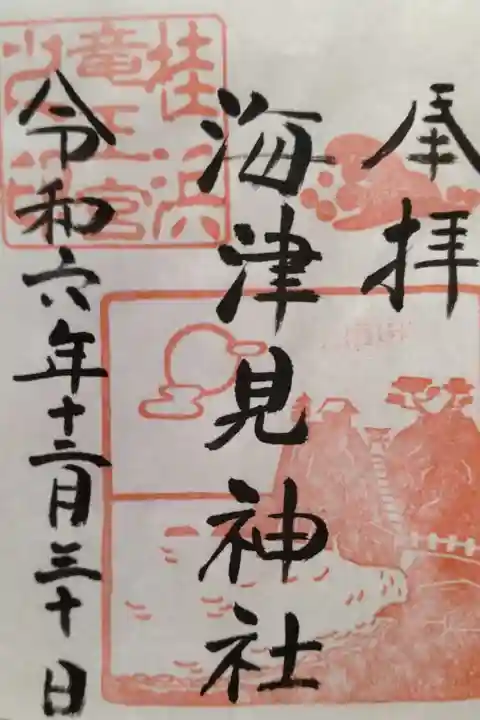 奉拝
海津見神社
令和六年十二月三十日
桂浜
竜王宮